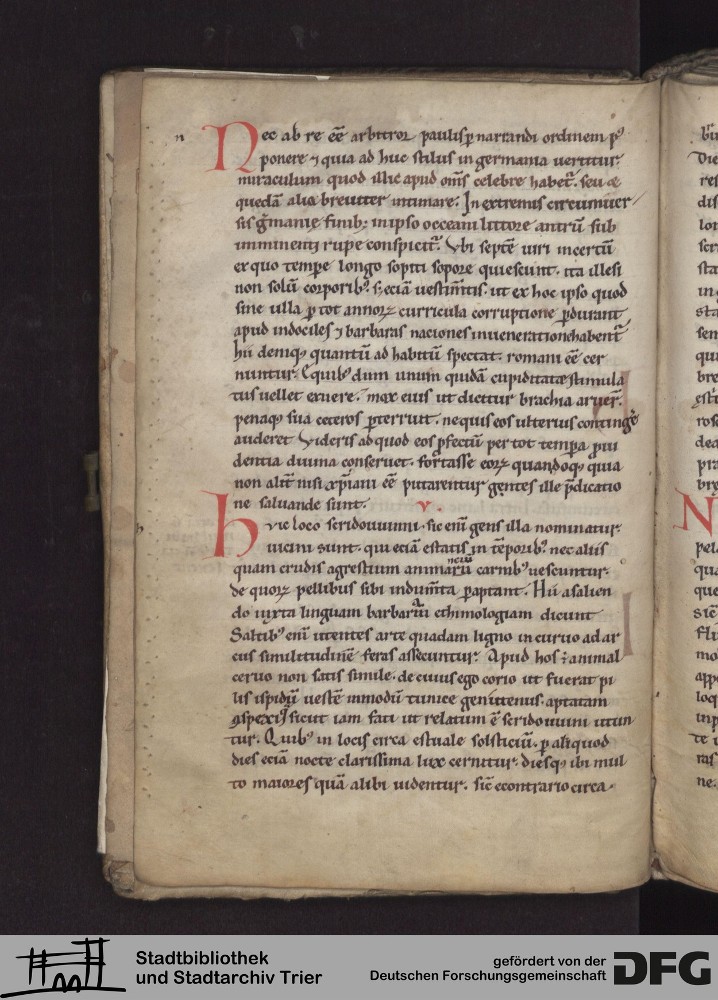 n
Nec ab re eē arbitror paulisꝑ narrandi ordinem p̄
ponere ⁊ quia ad huc stilus in germania uertitur.
miraculum quod illic apud om̄s celebre habet᷑. seu ⁊
quedā alia breuiter intimare. In extremis circumuer
sis ḡmanię finib; in ipso occeani littore antrū sub
imminenti rupe conspicit᷑. Vbi septē uiri incertū
ex quo tempore longo sopiti sopore quiescunt. ita illesi
non solū corporib; s; eciā uestim̄tis. ut ex hoc ipso quod
sine ulla ꝑ tot annoꝝ curricula corruptione ꝑdurant
apud indociles ⁊ barbaras naciones in ueneratione habent᷑
hii deniq; quantū ad habitū spectat. romani eē cer
nuntur. E quib; dum unum quidā cupiditate stimula
tus uellet exuere. mox eius ut dicitur brachia aruer̄.
penaq; sua ceteros ꝑterruit. ne quis eos ulterius continge
auderet Videris ad quod eos ꝓfectū per tot tempora ꝓui
dentia diuina conseruet. fortasse eoꝝ quandoq; quia
non alit̄ nisi xp̄iani eē putarentur gentes ille p̄dicatio
ne saluande sunt. v.
h
Huic loco scridouuinni. sic enī gens illa nominatur.
uicini sunt. qui eciā estatis in tēporib; nec aliis
quam crudis agrestium animanciū carnib; uescuntur.
de quoꝝ pellibus sibi indum̄ta ꝑaptant. Hii a salien
do iuxta linguam barbarā ethimologiam dicunt
Saltib; enī utentes arte quadam ligno incuruo ad ar
cus similitudinē feras assecuntur. Apud hos ÷ animal
ceruo non satis simile. de cuius ego corio ut fuerat pi
lis ispidū uestē in modū tunice genu tenus. aptatam
ꝯspexi sicut iam fati ut relatum ē scridouuini utun
tur. Quib; in locis circa estuale solsticiū. ꝑ aliquod
dies eciā nocte clarissima lux cernitur. diesq; ibi mul
to maiores quā alibi uidentur. sic̄ econtrario circa
Stadtbibliothek
und Stadtarchiv Trier
gefördert von der
Deutschen Forschungsgemeinschaft
DFG